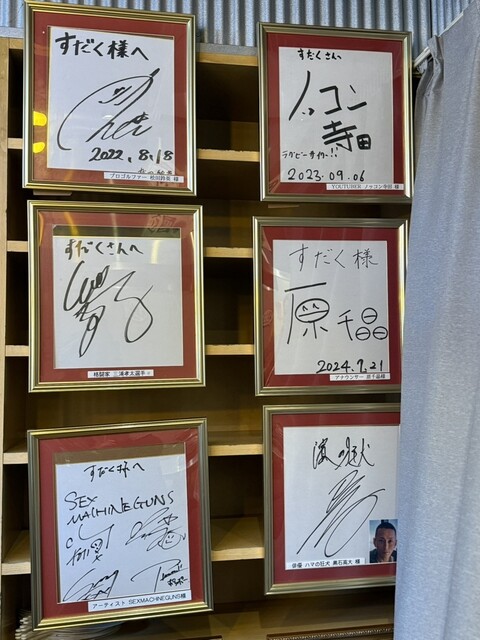 すだく様へ
2022.8.18
プロゴルファー 松田鈴英 様
すだくさんへ
ノッコン
寺田
ラグビーサイコー!!
2023.09.06
YOUTUBER ノッコン寺田 様
すだくさんへ
格闘家 三浦孝太選手
すだく様
原千晶
2024.7.21
アナウンサー 原千晶様
すだく様へ
SEX
MACHINEGUNS
アーティスト SEXMACHINEGUNS様
濱の狂犬
俳優 ハマの狂犬 黒石高大 様